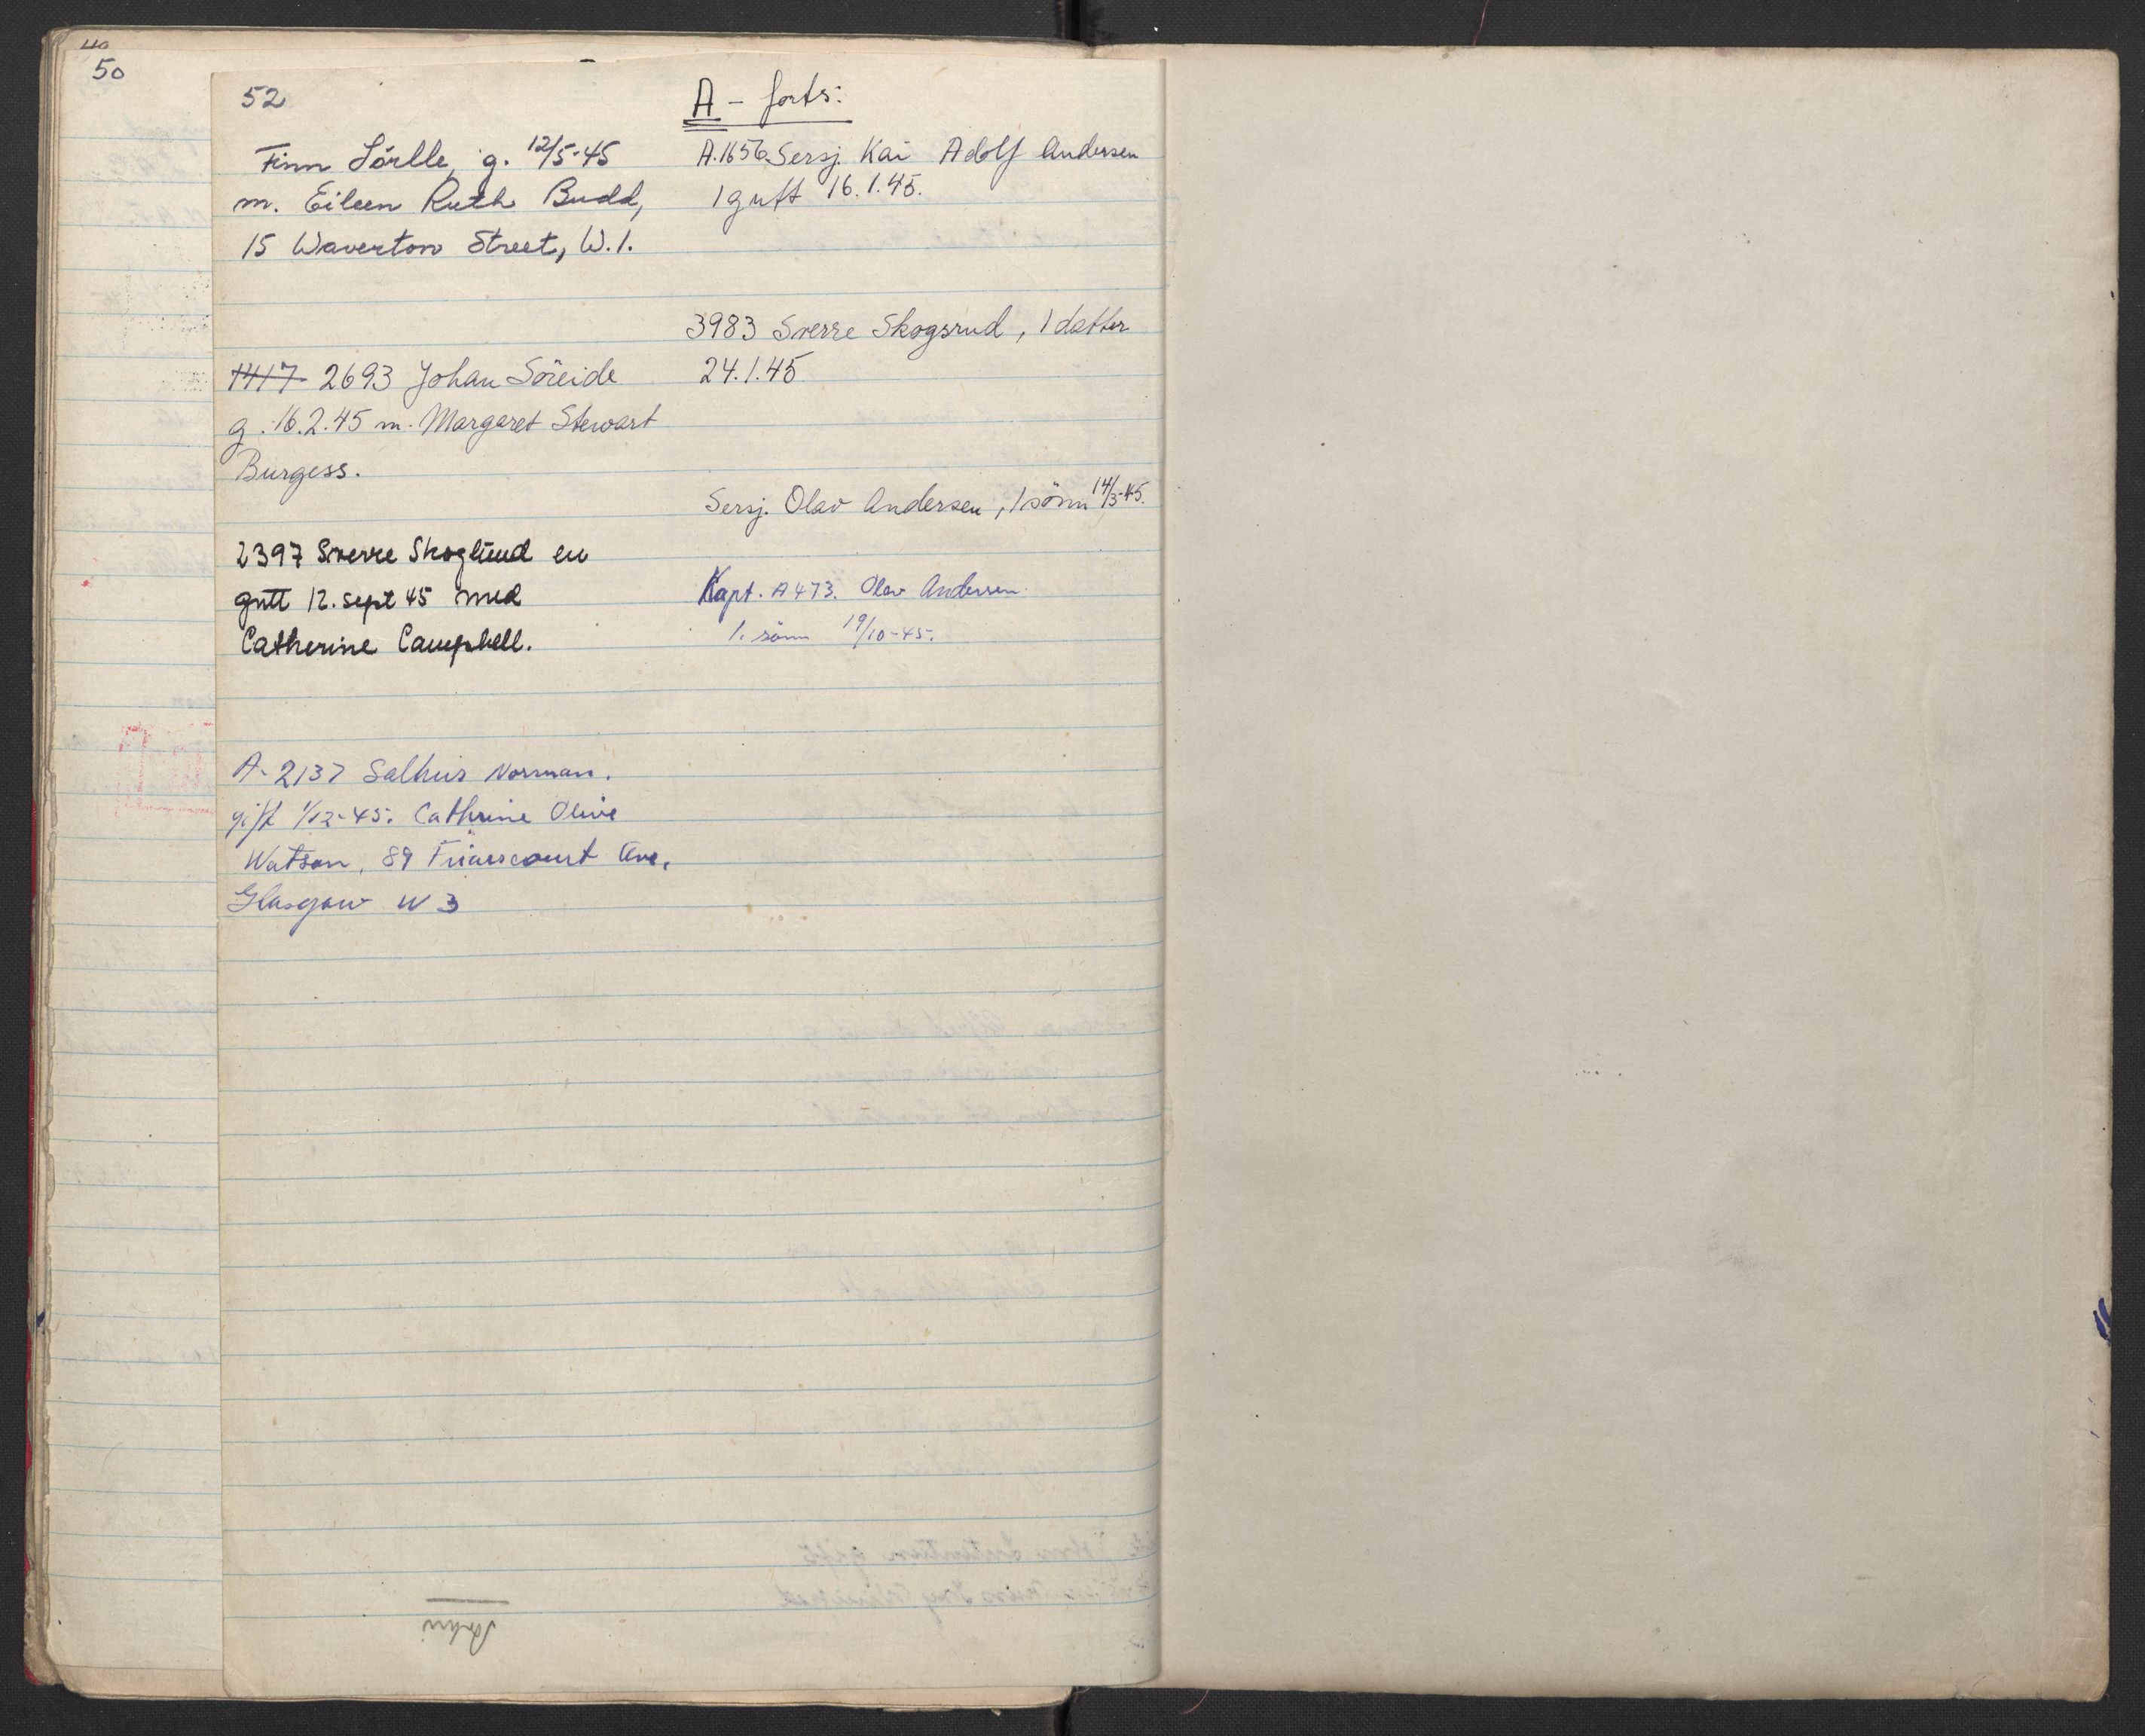 50
52
Finn Sörlle, g. 12/5-45
m. Eileen Ruth Budd,
15 Waverton Street, W.1.
1417 2693 Johan Söreide
g. 16.2.45 m. Margaret Stewart
Burgess.
2397 Sverre Skoglund en
gutt 12. sept 45 med
Catherine Campbell.
A-2137 Salhus Norman.
gift 1/12-45. Cathrine Olive
Watson, 89 Friarscourt Ave,
Glasgow W 3
A - forts:
A.1656 Sersj. Kai Adolf Andersen
1 gutt 16.1.45.
3983 Sverre Skogsrud, 1 datter
24.1.45
Sersj. Olav Andersen, 1 sönn 14/3-45.
Kapt. A473. Olav Andersen.
1. sönn 19/10-45.